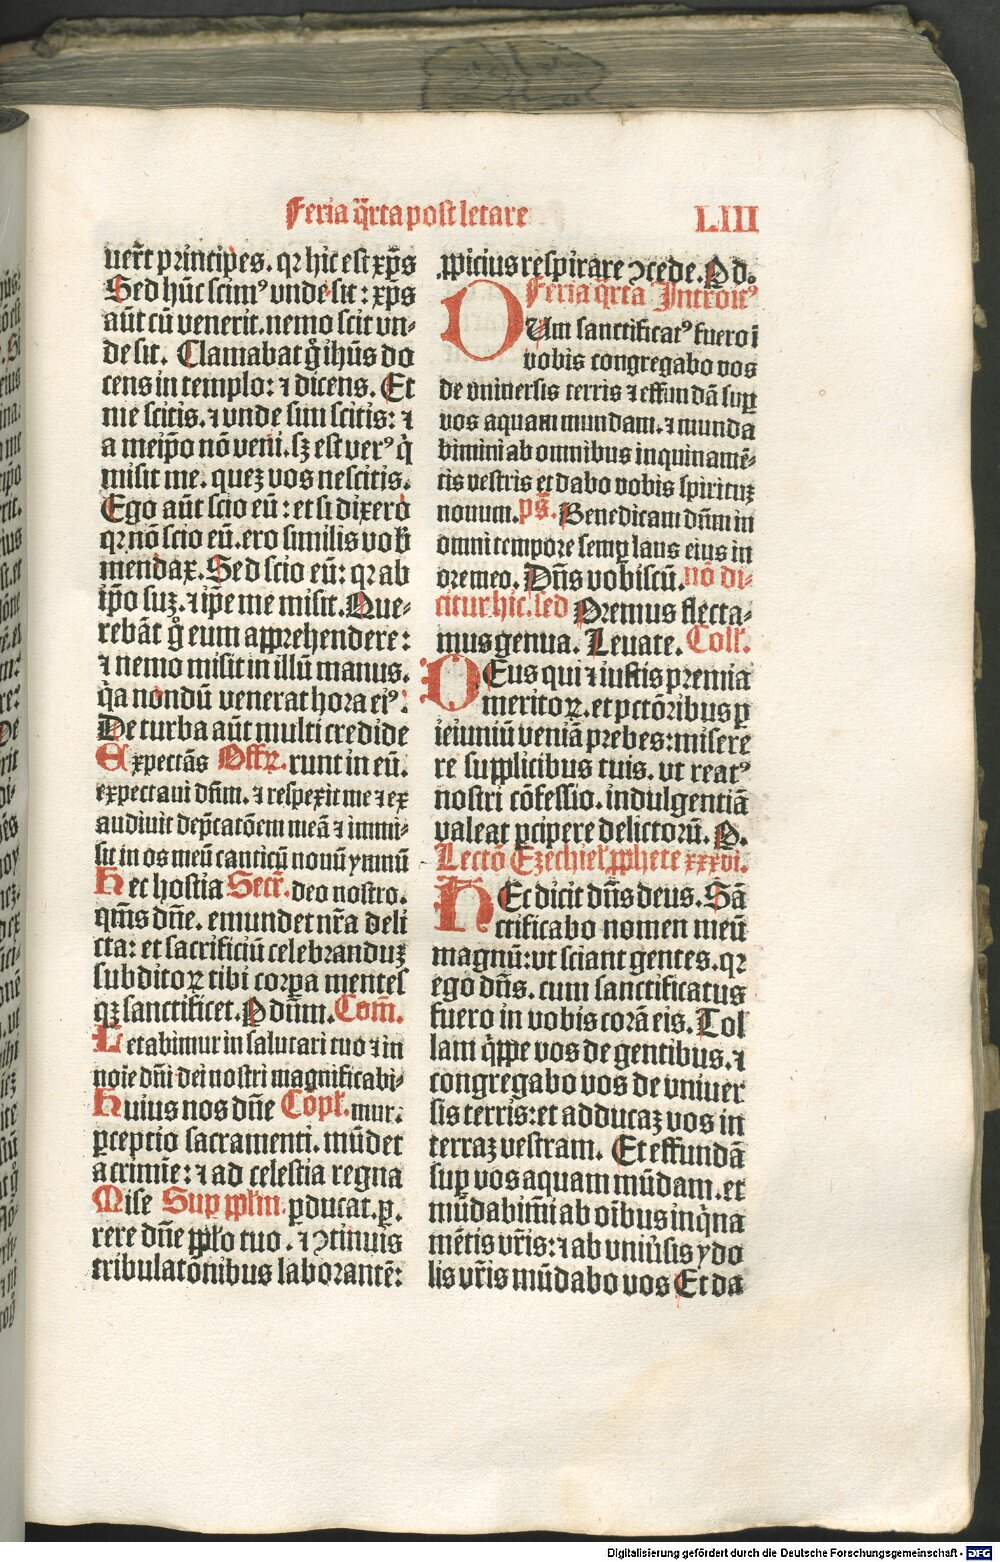 Feria q̄rta post letare
LIII
uer̄t principes. qr hic est xp̄s
Sed hūc scimꝰ vnde sit : xp̄s
aūt cū venerit. nemo scit vn-
de sit. Clamabat g̊ ihūs do
cens in templo: ⁊ dicens. Et
me scitis. ⁊ vnde sim scitis: ⁊
a meip̄o nō veni. sꝫ est verꝰ q̇
misit me. quez vos nescitis.
Ego aūt scio eū : et si dixero
qr nō scio eū. ero similis vob̄
mendax. Sed scio eū: qr ab
ip̄o suꝫ. ⁊ ip̄e me misit. Que-
rebāt g̊ eum apprehendere:
⁊ nemo misit in illū manus.
q̇a nondū venerat hora eiꝰ.
De turba aūt multi credide
Expectās Offꝝ. runt in eū.
expectaui dn̄m. ⁊ respexit me ⁊ ex
audiuit dep̄catōem meā ⁊ immi-
sit in os meū canticū nouū ymnū
Hec hostia Secr̄. deo nostro.
qm̄s dn̄e. emundet nr̄a deli
cta: et sacrificiū celebranduꝫ
subditoꝝ tibi corpa mentes
qꝫ sanctificet. P dn̄m. Com̄.
Letabimur in salutari tuo ⁊ in
noie dn̄i dei nostri magnificabi-
Huius nos dn̄e Cōpl̄. mur.
ꝑceptio sacramenti. mūdet
a crimīe: ⁊ ad celestia regna
Mise Suꝑ ppl̄m. ꝑducat. ꝑ.
rere dn̄e ppl̄o tuo. ⁊ ꝯtinuis
tribulatōnibus laborantē:
ꝓpicius respirare ꝯcede. P d.
Feria q̄rta Introitꝰ
DUm sanctificatꝰ fuero ī
vobis congregabo vos
de vniuersis terris ⁊ effundā suꝑ
vos aquam mundam. ⁊ munda
bimini ab omnibus inquinamē-
tis vestris et dabo vobis spirituꝫ
nouum. ps̄. Benedicam dn̄m in
omni tempore semꝑ laus eius in
ore meo. Dn̄s vobiscū. nō di-
citur hic. sed Oremus flecta-
mus genua. Leuate. Coll̄.
DEus qui ⁊ iustis premia
meritoꝝ. et pctōribus ꝑ
ieiuniū veniā prebes: misere
re supplicibus tuis. vt reatꝰ
nostri cōfessio. indulgentiā
valeat ꝑcipere delictorū. P.
Lectō Ezechiel̄ ꝓphete xxxvi.
HEc dicit dn̄s deus. Sā
ctificabo nomen meū
magnū: vt sciant gentes. qr
ego dn̄s. cum sanctificatus
fuero in vobis corā eis. Tol
lam q̇ppe vos de gentibus. ⁊
congregabo vos de vniuer
sis terris: et adducaꝫ vos in
terraꝫ vestram. Et effundā
suꝑ vos aquam mūdam. et
mūdabim̄i ab oībus inq̇na
mētis vr̄is: ⁊ ab vniūsis ydo
lis vr̄is mūdabo vos Et da
Digitalisierung gefördert durch die Deutsche Forschungsgemeinschaft - DFG